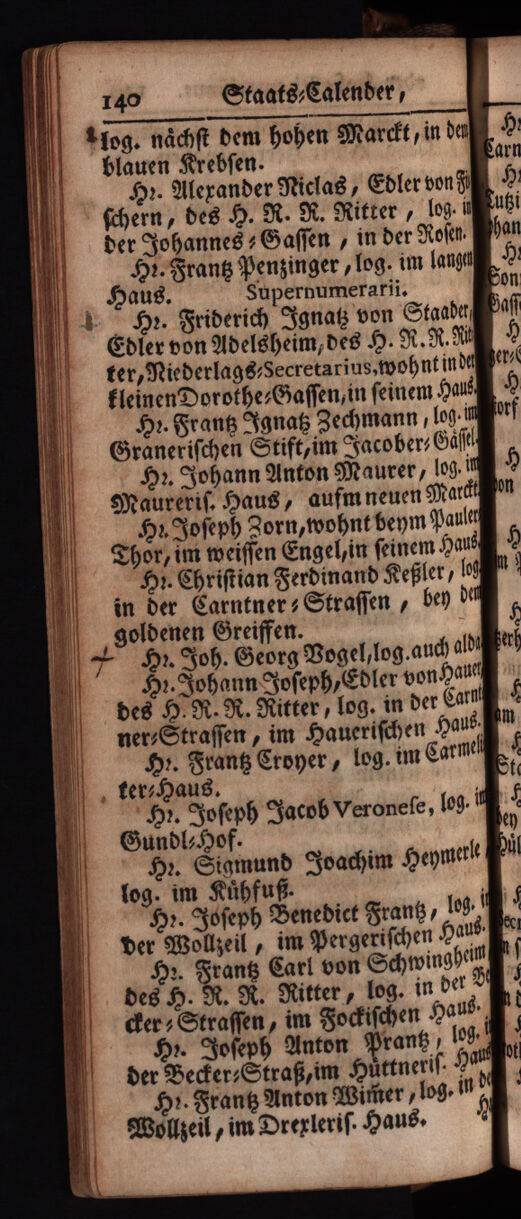 140 Staats-Calender,
log. nächst dem hohen Marckt, in dem
blauen Krebsen.
Hr. Alexander Niclas, Edler von Fi
schern, des H. R. R. Ritter, log. in
der Johannes-Gassen, in der Rosen.
Hr. Frantz Penzinger, log. im langen
Haus. Supernumerarii.
Hr. Friderich Ignatz von Staader,
Edler von Adelsheim, des H. R. R. Rit
ter, Niederlags-Secretarius, wohnt in der
kleinen Dorothe-Gassen, in seinem Haus.
Hr. Frantz Ignatz Zechmann, log. im
Granerischen Stift, im Jacober-Gässel.
Hr. Johann Anton Maurer, log. im
Maureris. Haus, aufm neuen Marckt.
Hr. Joseph Zorn, wohnt beym Pauler
Thor, im weissen Engel, in seinem Haus.
Hr. Christian Ferdinand Keßler, log
in der Carntner-Strassen, bey dem
goldenen Greiffen.
Hr. Joh. Georg Vogel, log. auch alda
Hr. Johann Joseph, Edler von Hauer,
des H. R. R. Ritter, log. in der Carnt
ner-Strassen, im Hauerischen Haus.
Hr. Frantz Croyer, log. im Carmeli
ter-Haus.
Hr. Joseph Jacob Veronese, log. in
Gundl-Hof.
Hr. Sigmund Joachim Heymerle,
log. im Kühfuß.
Hr. Joseph Benedict Frantz, log. in
der Wollzeil, im Pergerischen Haus.
Hr. Frantz Carl von Schwingheim
des H. R. R. Ritter, log. in der Be
cker-Strassen, im Fockischen Haus.
Hr. Joseph Anton Prantz, log. i
der Becker-Straß, im Hüttneris. Haus
Hr. Frantz Anton Wim̄er, log. in de
Wollzeil, im Drexleris. Haus. Hr